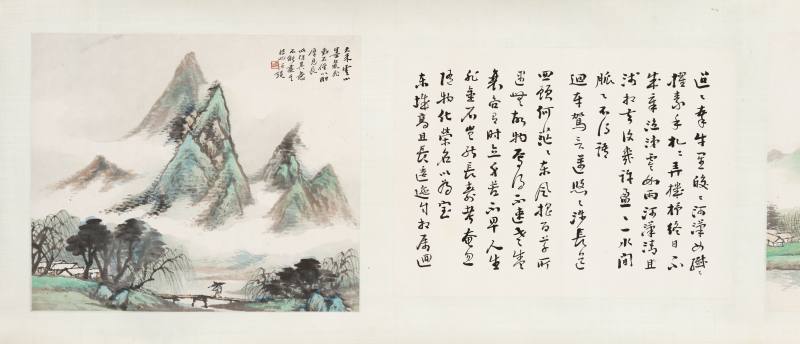 大米雲山
迢〻牽牛星皎〻河漢女纖〻
擢素手札〻弄機杼終日不
成章泣涕零如雨河漢清且
淺相去復幾許盈〻一水間
脈〻不得語
迴車駕言邁悠〻涉長道
四顧何茫〻東風搖百草所
遇無故物焉得不速老盛
衰各有時立身苦不早人生
非金石豈能長壽考奄忽
隨物化榮名以為寶
東城高且長逶迤自相屬迴